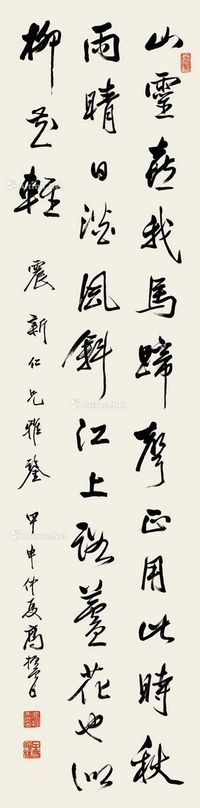 山靈喜我馬蹄聲正用此時秋
雨晴日淡風斜江上路蘆花也似
柳花輕
震新仁兄雅鑒 甲申仲夏高振霄